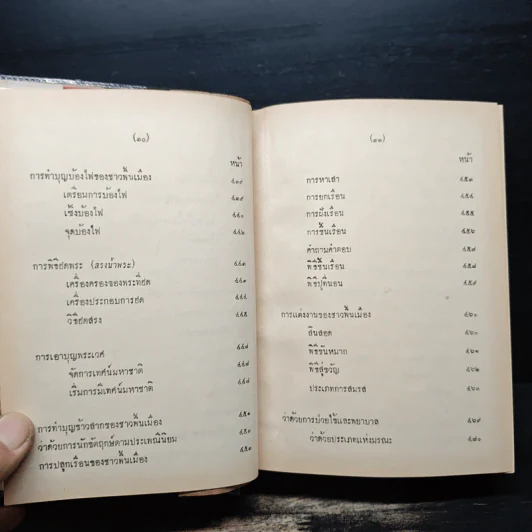 (๑๐)
หน้า
การทำบุญบ้องไฟของชาวพื้นเมือง ๔๓๙
เตรียมการบ้องไฟ ๔๓๙
เซิ้งบ้องไฟ ๔๔๐
จุดบ้องไฟ ๔๔๒
การพิธีฮดพระ (สรงน้ำพระ) ๔๔๓
เครื่องครองของพระที่ฮด
เครื่องประกอบการฮด
วิธีฮดสรง ๔๔๕
การเอาบุญพระเวศ ๔๔๗
จัดการเทศน์มหาชาติ ๔๔๗
เริ่มการมีเทศน์มหาชาติ ๔๔๘
การทำบุญข้าวสากของชาวพื้นเมือง ๔๕๑
ว่าด้วยการนักขัตฤกษ์ตามประเพณีนิยม
การปลูกเรือนของชาวพื้นเมือง
(๑๑)
หน้า
การหาเสา ๔๕๓
การยกเรือน ๔๕๔
การมุงเรือน ๔๕๕
การขึ้นเรือน
คำถามคำตอบ
พิธีขึ้นเรือน
พิธีปูที่นอน
การแต่งงานของชาวพื้นเมือง ๔๖๐
สินสอด ๔๖๐
พิธีขันหมาก ๔๖๑
พิธีสู่ขวัญ ๔๖๒
ประเภทการสมรส ๔๖๓
ว่าด้วยการป่วยไข้และพยาบาล ๔๖๙
ว่าด้วยประเภทแห่งมรณะ ๔๗๐